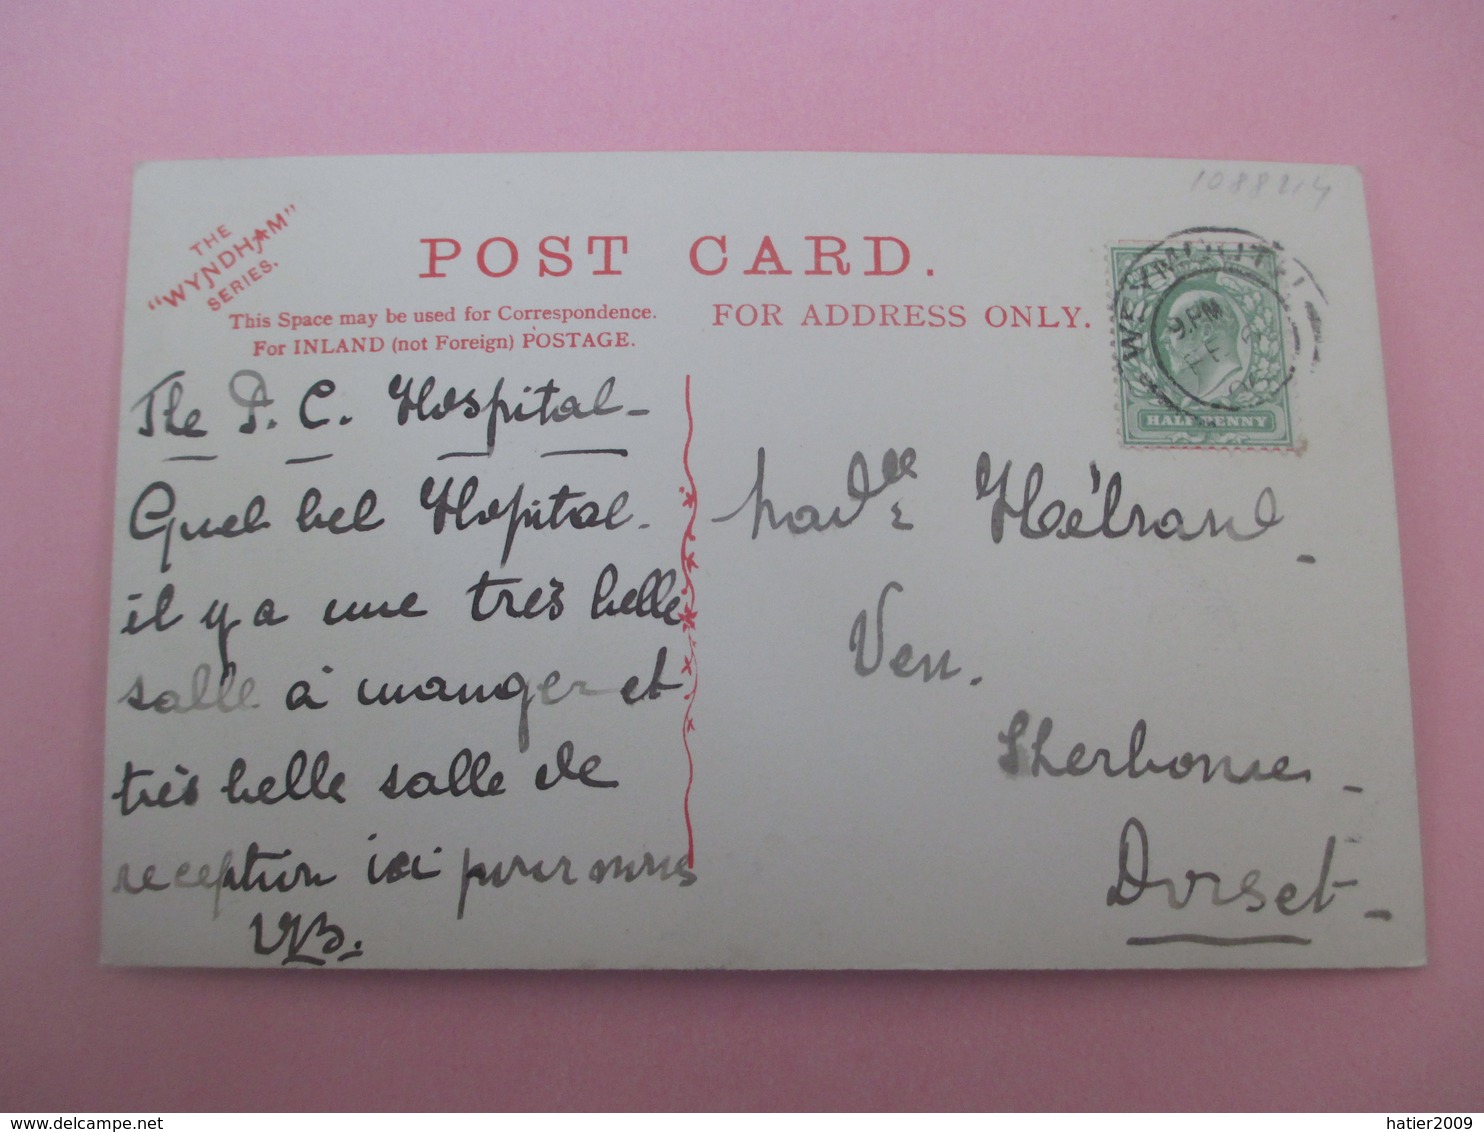 1088214
THE
"WYNDHAM"
SERIES.
POST CARD.
This Space may be used for Correspondence.
For INLAND (not Foreign) POSTAGE.
FOR ADDRESS ONLY.
WEYMOUTH
9.PM
FE
HALFPENNY
The P. C. Hospital_
Quel bel Hopital_
il y a une très belle
salle à manger et
très belle salle de
reception ici pour nous
Mad.elle Hébrard_
Ven.
Sherborne_
Dorset_
delcampe.net
hatier2009